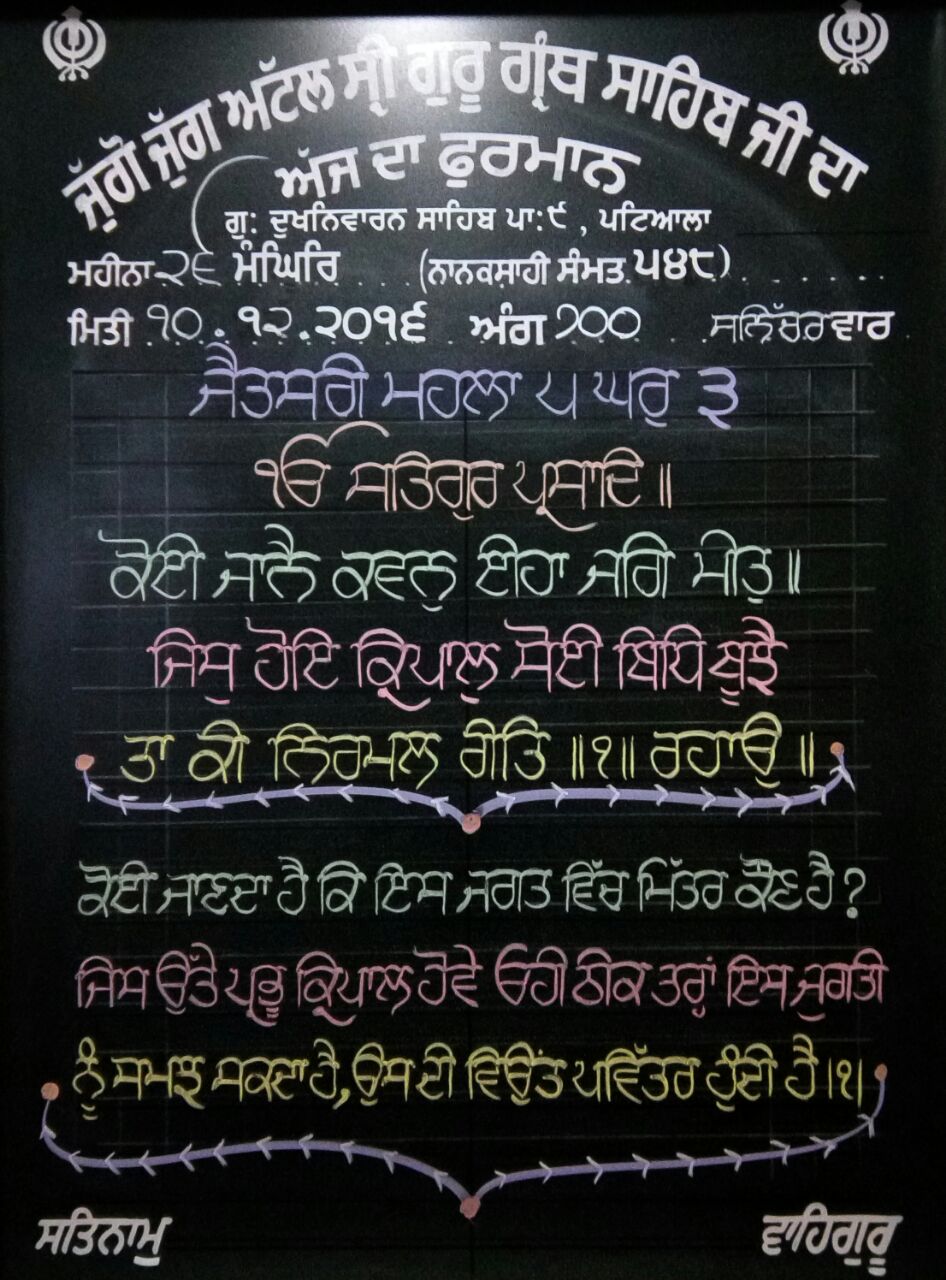 ਜੁੱਗੋ ਜੁੱਗ ਅਟੱਲ ਸ੍ਰੀ ਗੁਰੂ ਗ੍ਰੰਥ ਸਾਹਿਬ ਜੀ ਦਾ
ਅੱਜ ਦਾ ਫੁਰਮਾਨ
ਗੁ: ਦੁਖਨਿਵਾਰਨ ਸਾਹਿਬ ਪਾ:੯ , ਪਟਿਆਲਾ
ਮਹੀਨਾ ੨੬ ਮੰਘਿਰਿ (ਨਾਨਕਸ਼ਾਹੀ ਸੰਮਤ ੫੪੮)
ਮਿਤੀ ੧੦.੧੨.੨੦੧੬ ਅੰਗ ੭੦੦ ਸਨਿੱਚਰਵਾਰ
ਜੈਤਸਰੀ ਮਹਲਾ ੫ ਘਰੁ ੩
ੴ ਸਤਿਗੁਰ ਪ੍ਰਸਾਦਿ ॥
ਕੋਈ ਜਾਨੈ ਕਵਨੁ ਈਹਾ ਜਗਿ ਮੀਤੁ ॥
ਜਿਸੁ ਹੋਇ ਕ੍ਰਿਪਾਲੁ ਸੋਈ ਬਿਧਿ ਬੂਝੈ
ਤਾ ਕੀ ਨਿਰਮਲ ਰੀਤਿ ॥੧॥ ਰਹਾਉ ॥
ਕੋਈ ਜਾਣਦਾ ਹੈ ਕਿ ਇਸ ਜਗਤ ਵਿੱਚ ਮਿੱਤਰ ਕੌਣ ਹੈ ?
ਜਿਸ ਉੱਤੇ ਪ੍ਰਭੂ ਕ੍ਰਿਪਾਲ ਹੋਵੇ ਓਹੀ ਠੀਕ ਤਰ੍ਹਾਂ ਇਸ ਜੁਗਤੀ
ਨੂੰ ਸਮਝ ਸਕਦਾ ਹੈ, ਉਸ ਦੀ ਵਿਉਂਤ ਪਵਿੱਤਰ ਹੁੰਦੀ ਹੈ ।੧।
ਸਤਿਨਾਮੁ ਵਾਹਿਗੁਰੂ